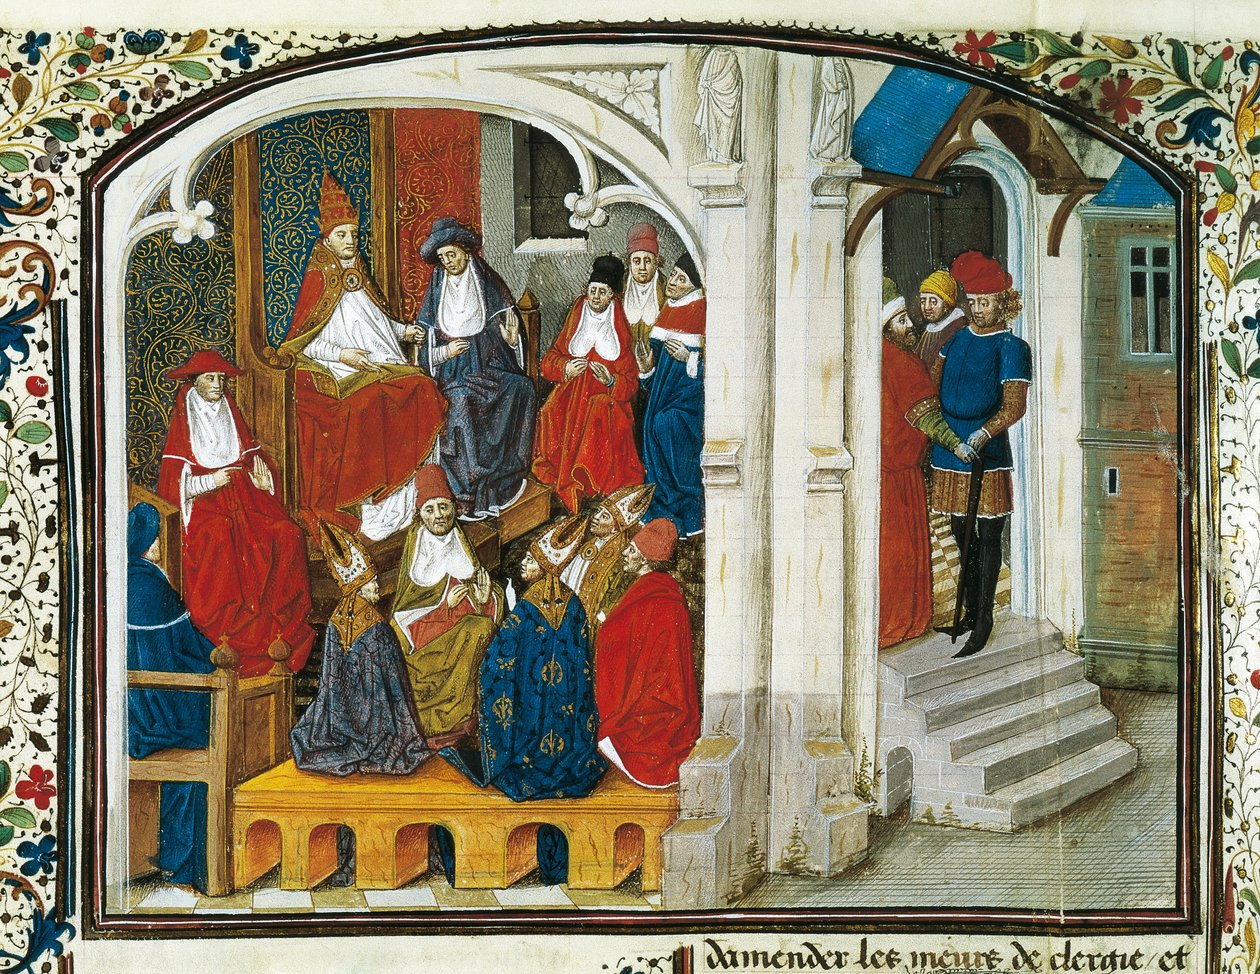 damender les meurs de clergie / et